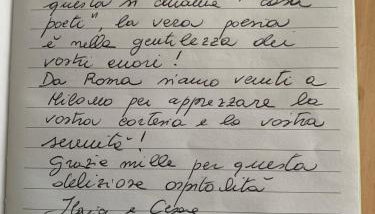 questa si chiama "casa
poeti", la vera poesia
è nella gentilezza dei
vostri cuori!
Da Roma siamo venuti a
Milano per apprezzare la
vostra cortesia e la vostra
serenità!
Grazie mille per questa
deliziosa ospitalità
Ilaria e Cesare